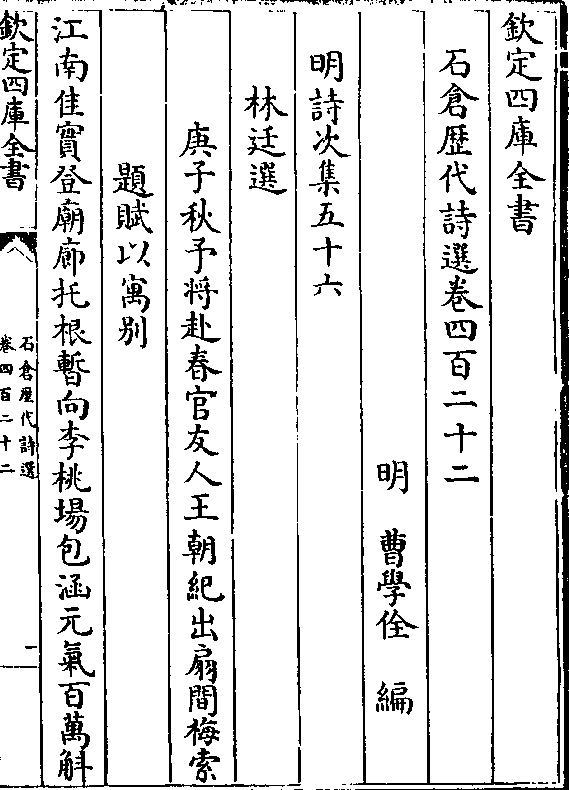 欽定四庫全書
石倉歷代詩選卷四百二十二
明　曹學佺　編
明詩次集五十六
林廷選
庚子秋予將赴春官友人王朝紀出扇間梅索
題賦以寓别
江南佳實登廟廊托根暫向李桃場包涵元氣百萬斛
欽定四庫全書
石倉歷代詩選
卷四百二十二
一